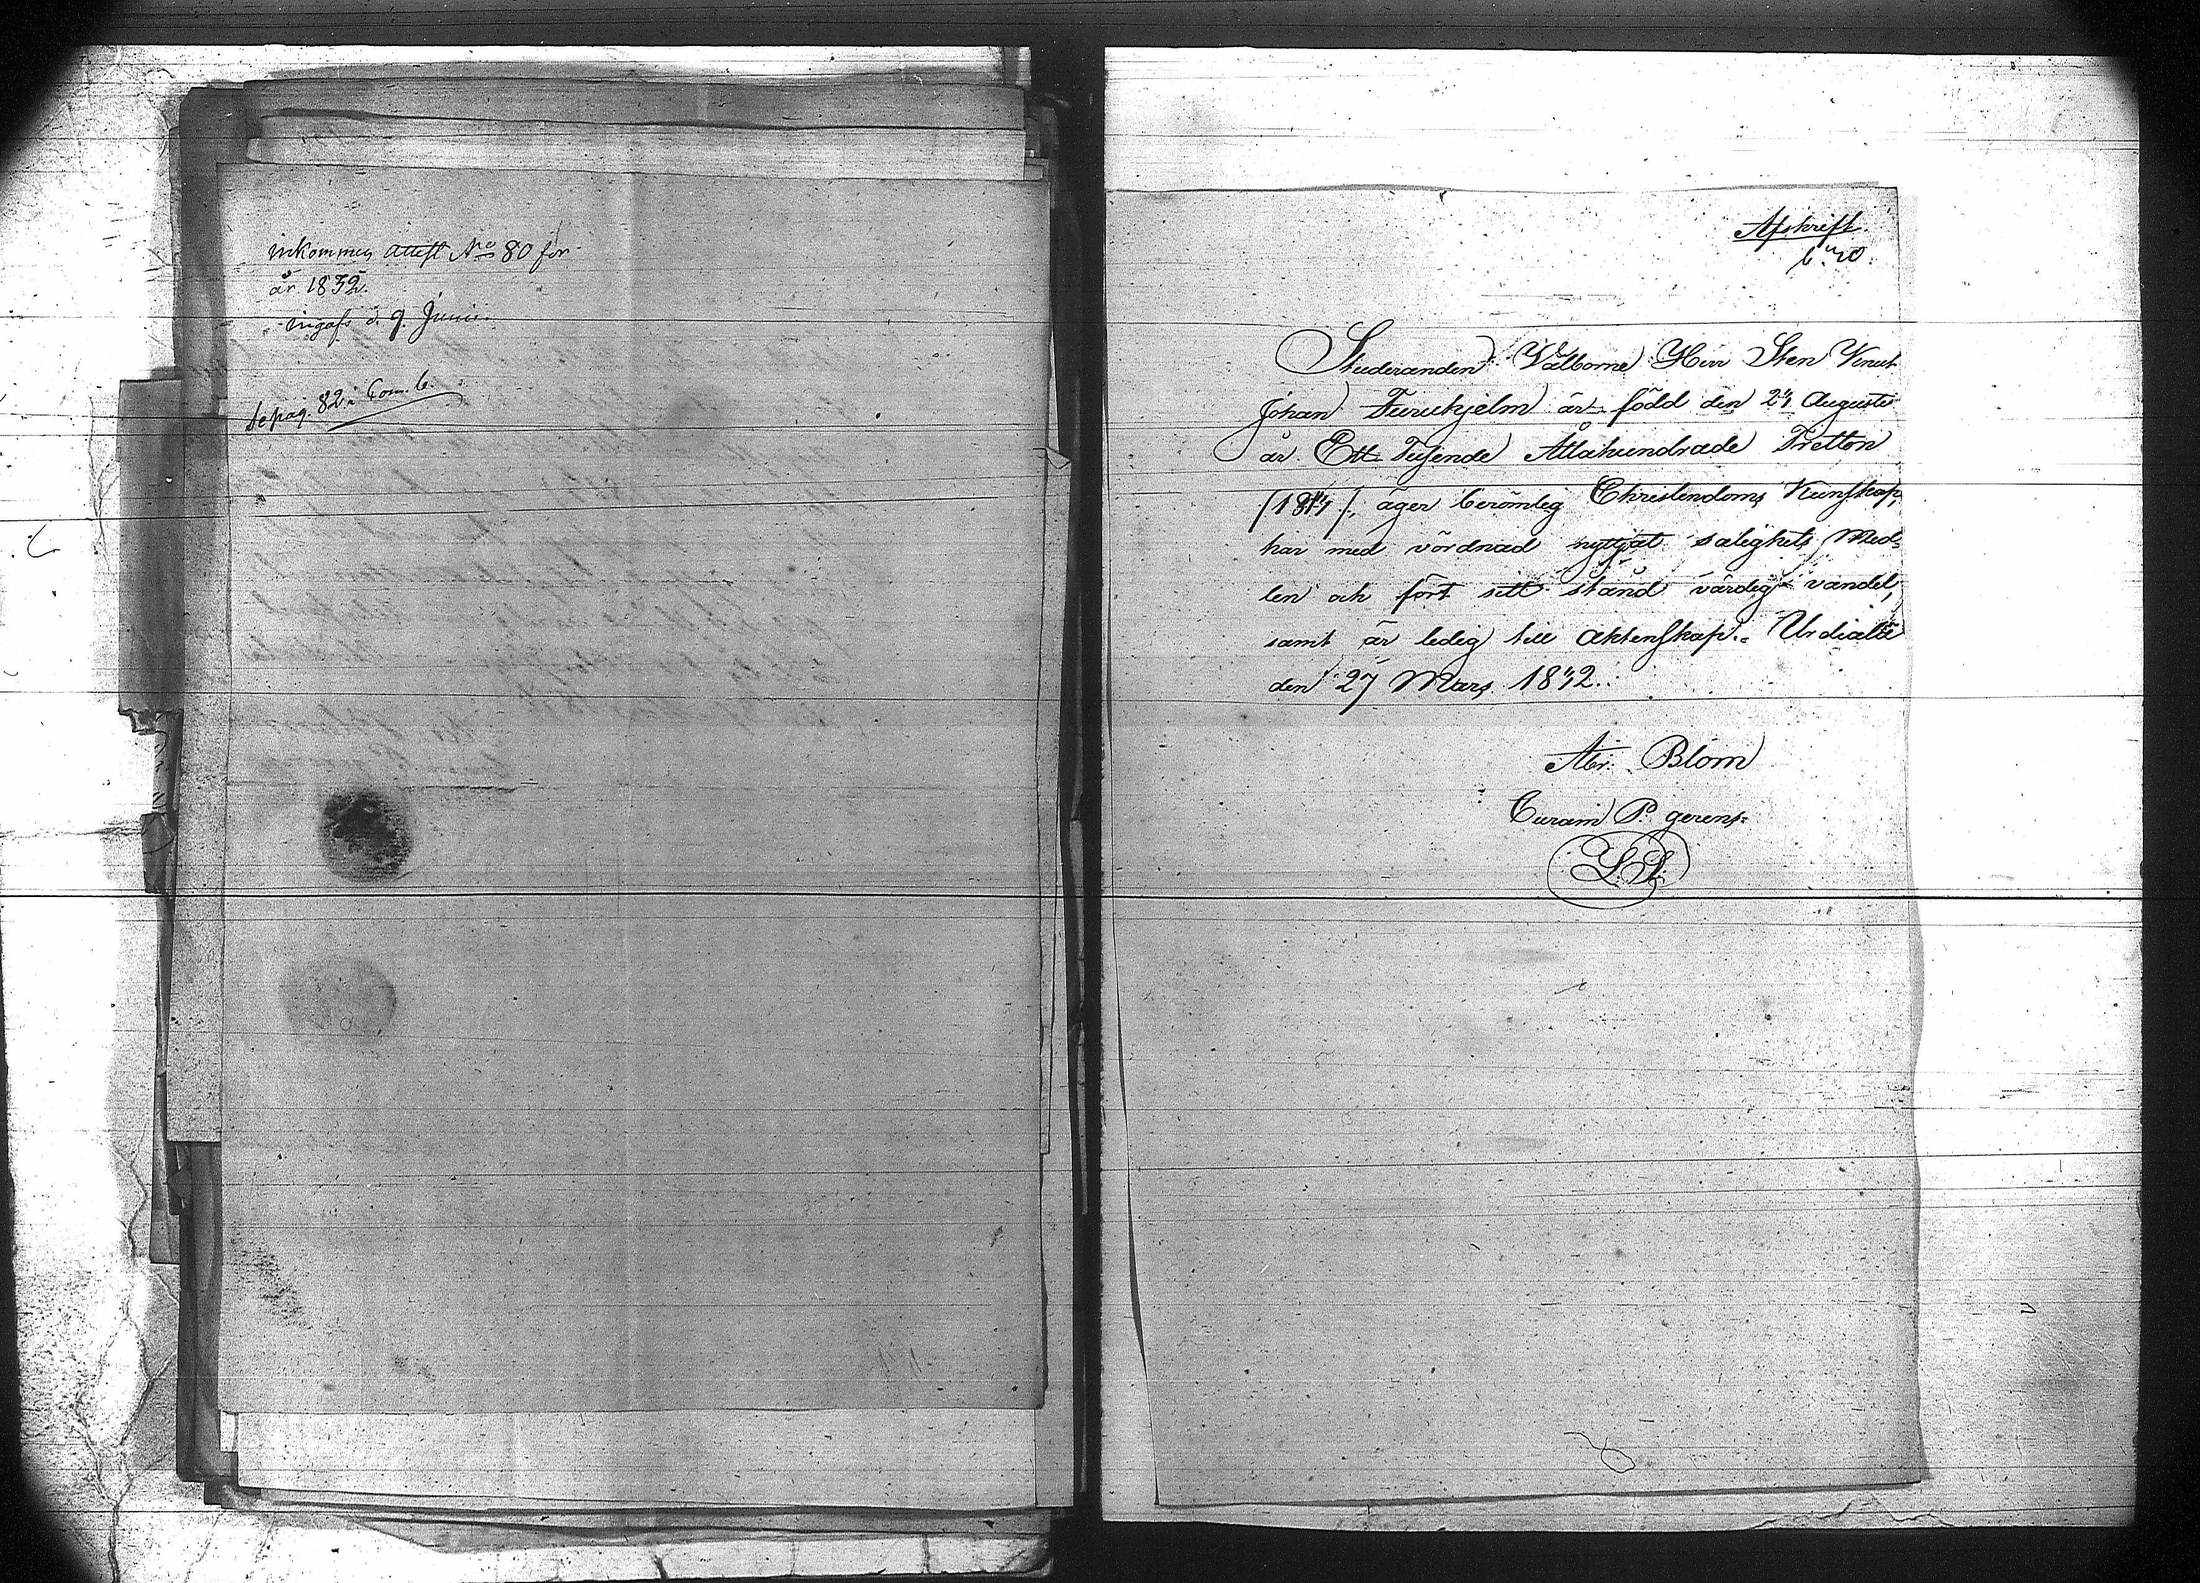 inkommen attest No 80 för
år 1832
ingafs d. 9 Junii.
se pag. 82 i Tom 6.
Afskrift.
Studeranden Välborne Herr Sten Knut
Johan Furuhjelm är född den 24 Augusti
år Ett Tusende Åttahundrade Tretton
äger berömlig Christendoms Kunskap,
har med vördnad nyttjat salighets Med-
len och fört sitt stånd värdig vandel,
samt är ledig till äktenskap. Urdiala
den 27 Mars
Abr. Blom
Curam P. gerens
L.S.